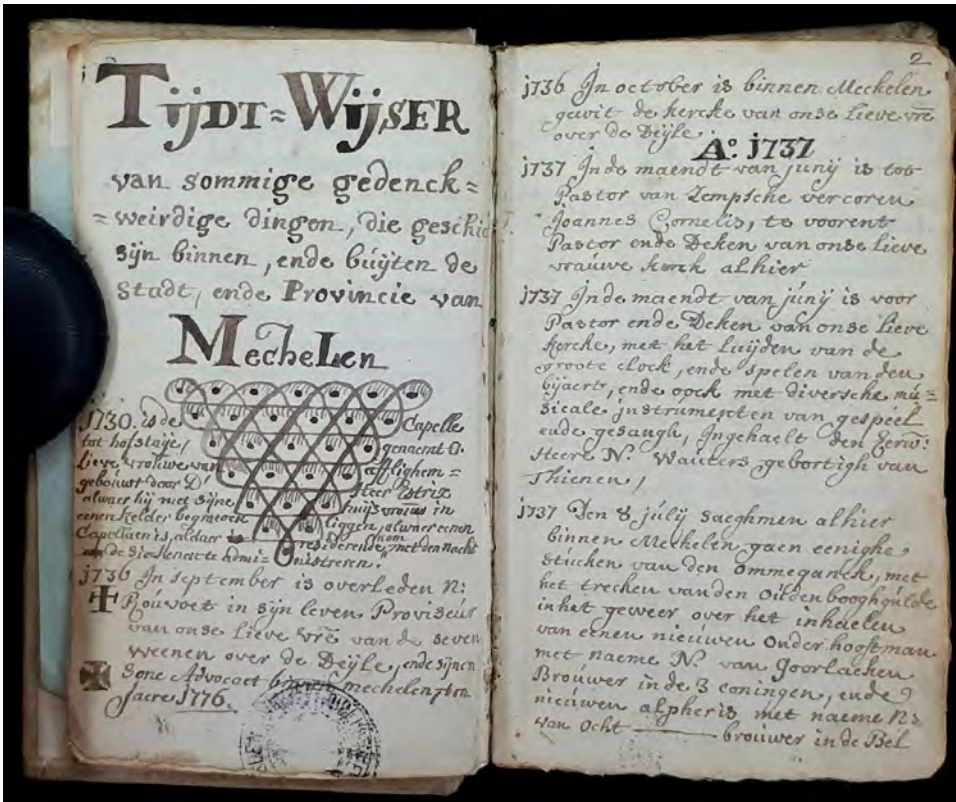 TIJDT=WIJSER
van sommige gedenck=
=weirdige dingen, die geschiet
sijn binnen, ende buÿten de
Stadt, ende Provincie van
MecheLen
1730. is de Capelle
tot hofstaÿe, genaemt O.
Lieve vrouwe van afflighem =
gebouwt door D' Heer Estrix
alwaer hij met sijne huijsvrouw in
eenen kelder begraeven liggen, alwaer eenen
Capellaen is, aldaer residerende, met den nacht
de Sieckenen te admi= nistreren.
1736 Jn september is overleden N:
Roúvoet in sijn leven Proviseúr
van onse Lieve vrē van de seven
weenen over de Deijle, ende sijnen
Sone Advocaet binnen mechelen
Jaere 1776.
2
1736 Jn october is binnen Mechelen
gewit de kercke van onse Lieve vrē
over de Deÿle
Aº. 1737
1737 Jnde maendt van junÿ is tot
Pastor van Lempsche vercoren
Joannes Cornelis, te voorent
Pastor ende Deken van onse Lieve
vraúwe kerck alhier
1737 Jnde maendt van júnÿ is voor
Pastor ende Deken van onse Lieve
kercke, met het Luijden van de
groote clock, ende spelen van den
bijaert, ende oock met diversche mú=
sicale jnstrumenten van gespeel
ende gesangh, Jngehaelt den Eerw:
Heere N. Waúters gebortigh van
Thienen,
1737 Den 8 júlij saeghmen alhier
binnen Mechelen gaen eenighe
stúcken van den ommeganck, met
het trecken vanden oúden booghgúlde
inhet geweer over het inhaelen
van eenen nieúwen onderhooftman
met naeme N. van Goorlacken
Broúwer inde 3 coningen, ende
nieúwen alpheris met naeme N:
van Ocht — broúwer in de Bel